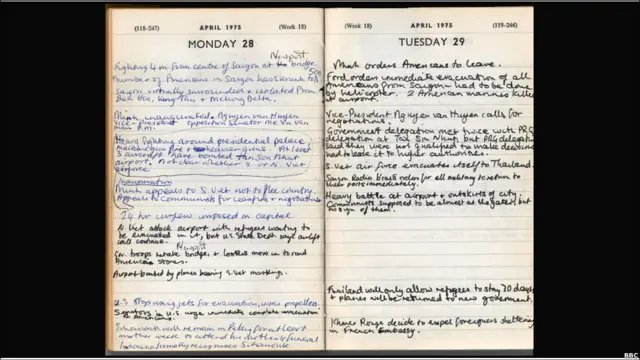 (118-247) APRIL 1975 (Week 18)
MONDAY 28
Newport
Fighting 4 m from centre of Saigon at the bridge.
Number of Americans in Saigon has shrunk to 500
Saigon virtually surrounded & isolated from
Vung Tau & Mekong Delta.
Minh inaugurated. Nguyen van Huyen
vice-president opposition senator Vu van
Heavy fighting around presidential palace
machine gun fire At least
3 aircraft have bombed Tan Son Nhut
airport. Not clear whether S. or N. Viet
airforce
Inauguration
Minh appeals to S. Viet not to flee country.
Appeals to Communists for ceasefire & negotiations
24 hr curfew imposed on capital.
N. Viet attack airport with refugees waiting to
be evacuated in it, but U.S. State Dept. says airlift
will continue.
Newport
Gov. troops retake bridge, & looters move in to raid
American stores.
Airport bombed by planes bearing S. Viet markings.
U.S. stops using jets for evacuation, uses propellers.
Senators in U.S. urge immediate complete evacuation
of Americans.
Sihanouk will remain in Peking for at least
another week to attend his mother's funeral
recognises Sihanouk
(Week 18) APRIL 1975 (119-246)
TUESDAY 29
Minh orders Americans to leave.
Ford orders immediate evacuation of all
Americans from Saigon - had to be done
by helicopter. 2 American marines killed
at airport.
Vice-President Nguyen van Huyen calls for
negotiations.
Government delegation met twice with PRG
delegation at Tan Son Nhut but PRG delegation
said they were not qualified to make decisions
had to leave it to higher authorities.
S. Viet air force evacuates itself to Thailand.
Saigon Radio broadcasts order for all military to return to
their posts immediately.
Heavy battle at airport & outskirts of city.
Communists supposed to be almost at the gates, but
no sign of them.
Thailand will only allow refugees to stay 30 days
& planes will be returned to new government.
Khmer Rouge decide to expel foreigners sheltering
in French Embassy.
BBC